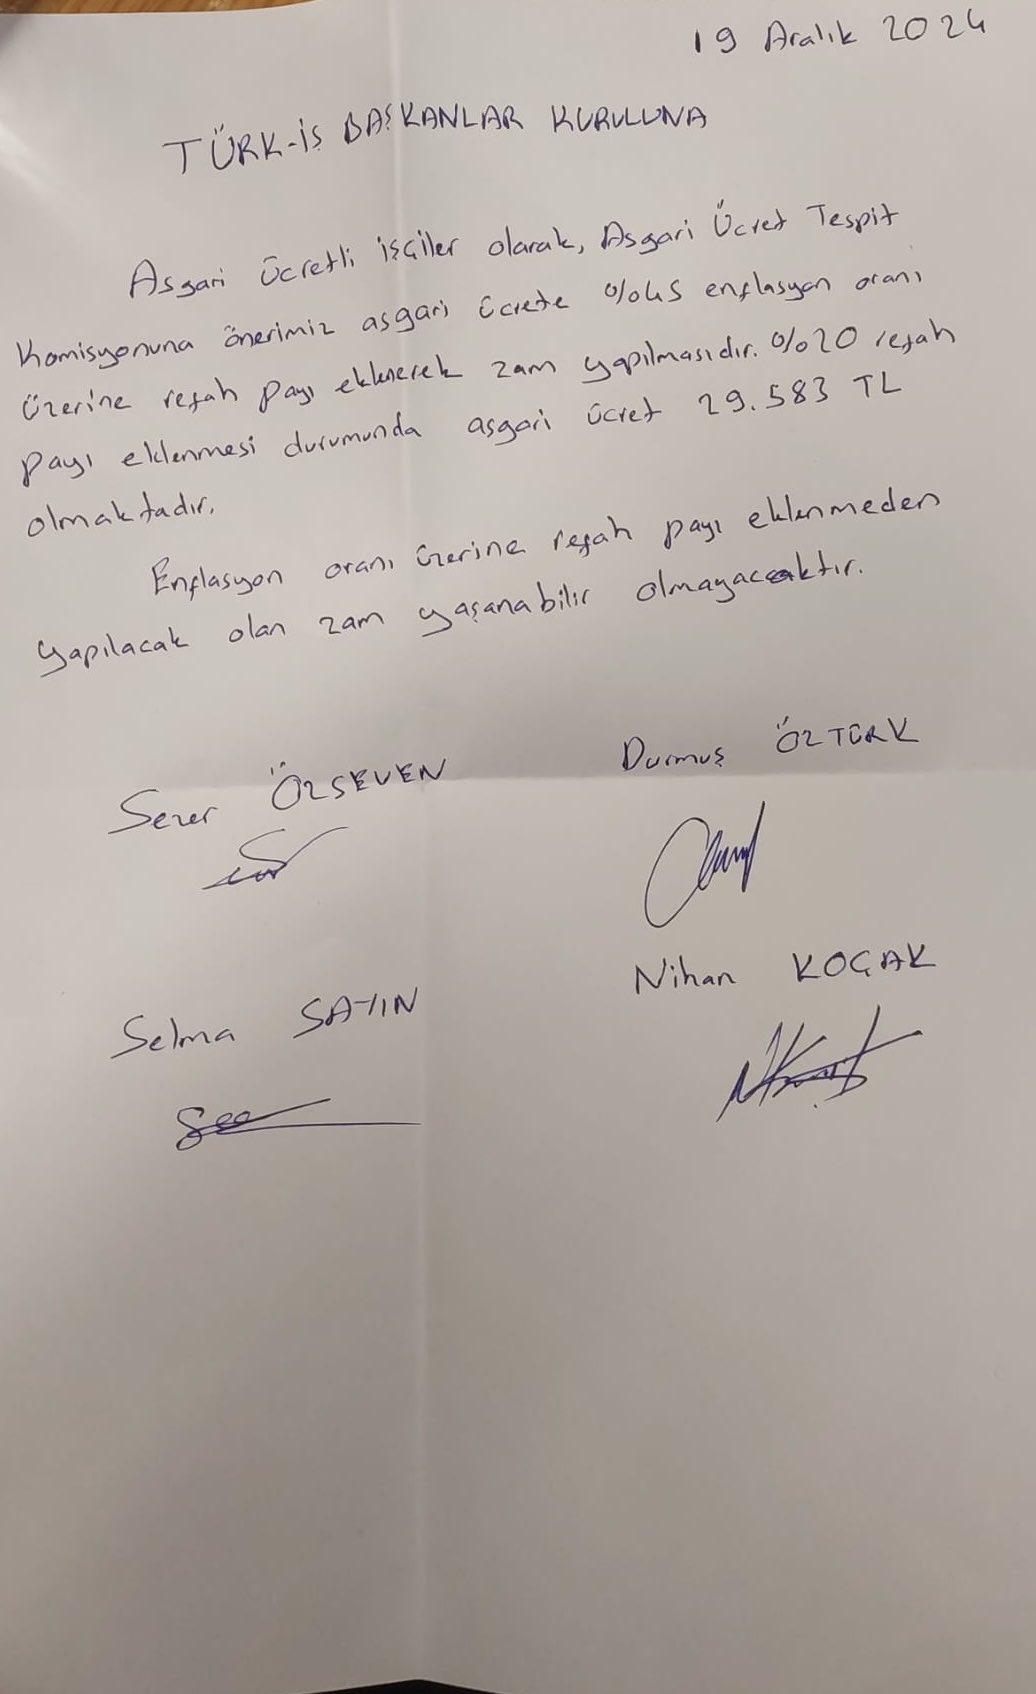 19 Aralık 2024
TÜRK-İŞ BAŞKANLAR KURULUNA
Asgari ücretli işçiler olarak, Asgari Ücret Tespit
Komisyonuna önerimiz asgari ücrete %45 enflasyon oranı
üzerine refah payı eklenerek zam yapılmasıdır. %20 refah
payı eklenmesi durumunda asgari ücret 29.583 TL
olmaktadır.
Enflasyon oranı üzerine refah payı eklenmeden
yapılacak olan zam yaşanabilir olmayacaktır.
Sezer ÖZSEVEN
Durmuş ÖZTÜRK
Selma SAYIN
Nihan KOÇAK